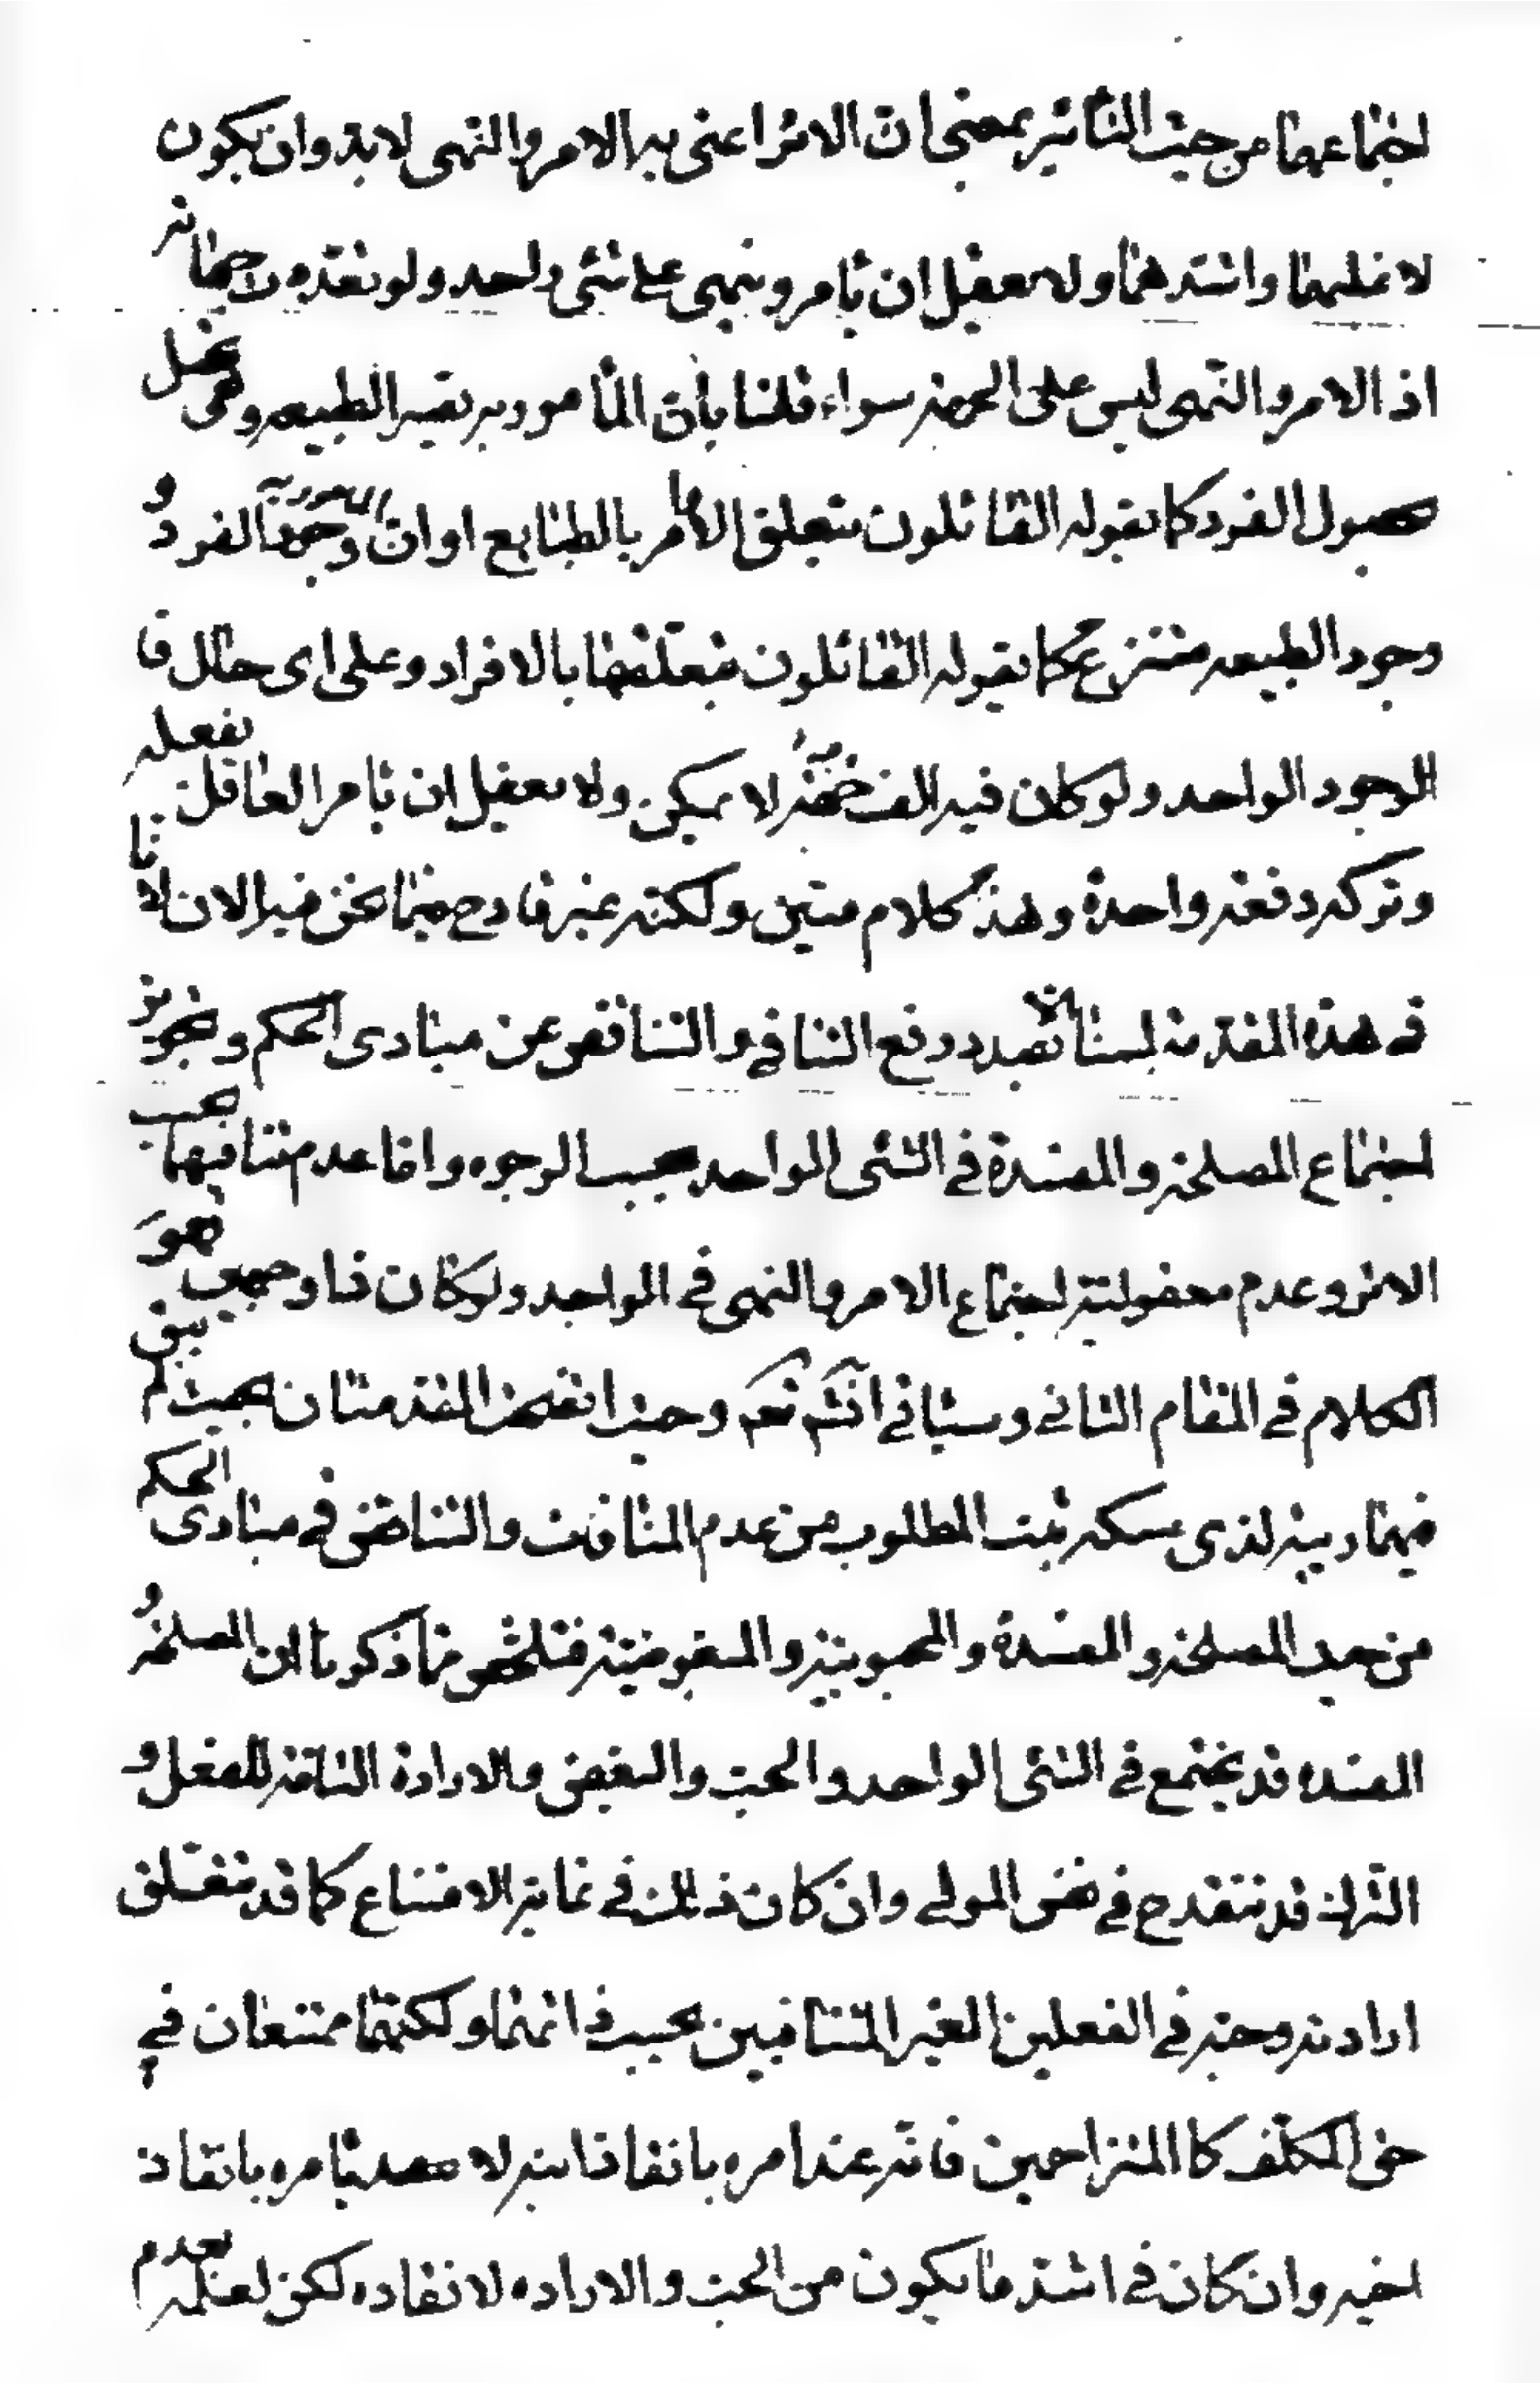 اجتماعهما من حيث التأثير بمعنى ان الاثر اعنى به الامر والنهى لابد وان يكون
لاغلبهما واشدهما ولا يعقل ان يأمر وينهى على شئ واحد ولو بعده لاجهاته
اذ الامر والنهى ليس على الجهة سواء قلنا بأن المأمور به نفس الطبيعه وهى تحصل
بحصول الفرد كما يقوله القائلون بتعلق الامر بالطبايع او ان المأمور به وجود الفرد و
وجود الطبيعه منتزع كما يقوله القائلون بتعلقهما بالافراد وعلى اى حال فا
لوجود الواحد ولو كان فيه الف جهة لا يمكن ولا يعقل ان يأمر العاقل بفعله
وتركه دفعة واحدة وهذا كلام متين ولكنه غير قادح فيما نحن فيه الان لانا
فى هذه المقدمة لسنا الا بصدد رفع التنافى والتناقض عن مبادى الحكم وتجويز
اجتماع المصلحة والمفسدة فى الشئ الواحد بحسب الوجوه واما عدم تنافيهما بحسب
الاثر وعدم معقولية اجتماع الامر والنهى فى الواحد ولو كان ذا وجهين فهو
الكلام فى المقام الثانى وسيأتى انشم نعم وحيث اتضحت المقدمتان بحيث لم يبق
فيهما ريبة لذى مسكه ثبت المطلوب من عدم المنافات والتناقض فى مبادى الحكم
من حيث المصلحة والمفسدة والمحبوبية والمبغوضية فتلخص مما ذكرنا ان المصلحة و
المفسده قد يجتمع فى الشئ الواحد والحب والبغض والارادة التامة للفعل و
الترك قد تنقدح فى نفس المولى وان كان ذلك فى غاية الامتناع كما قد تتعلق
ارادته وحبه فى الفعلين الغير المتنافيين بحسب ذاتهما ولكنهما ممتنعان فى
حق المكلف كالمتزاحمين فانه عند امره بانقاذ ابنه لا يأمره بانقاذ
اخيه وان كان فى اشد ما يكون من الحب والاراده لانقاذه لكن لعلمه بعدم